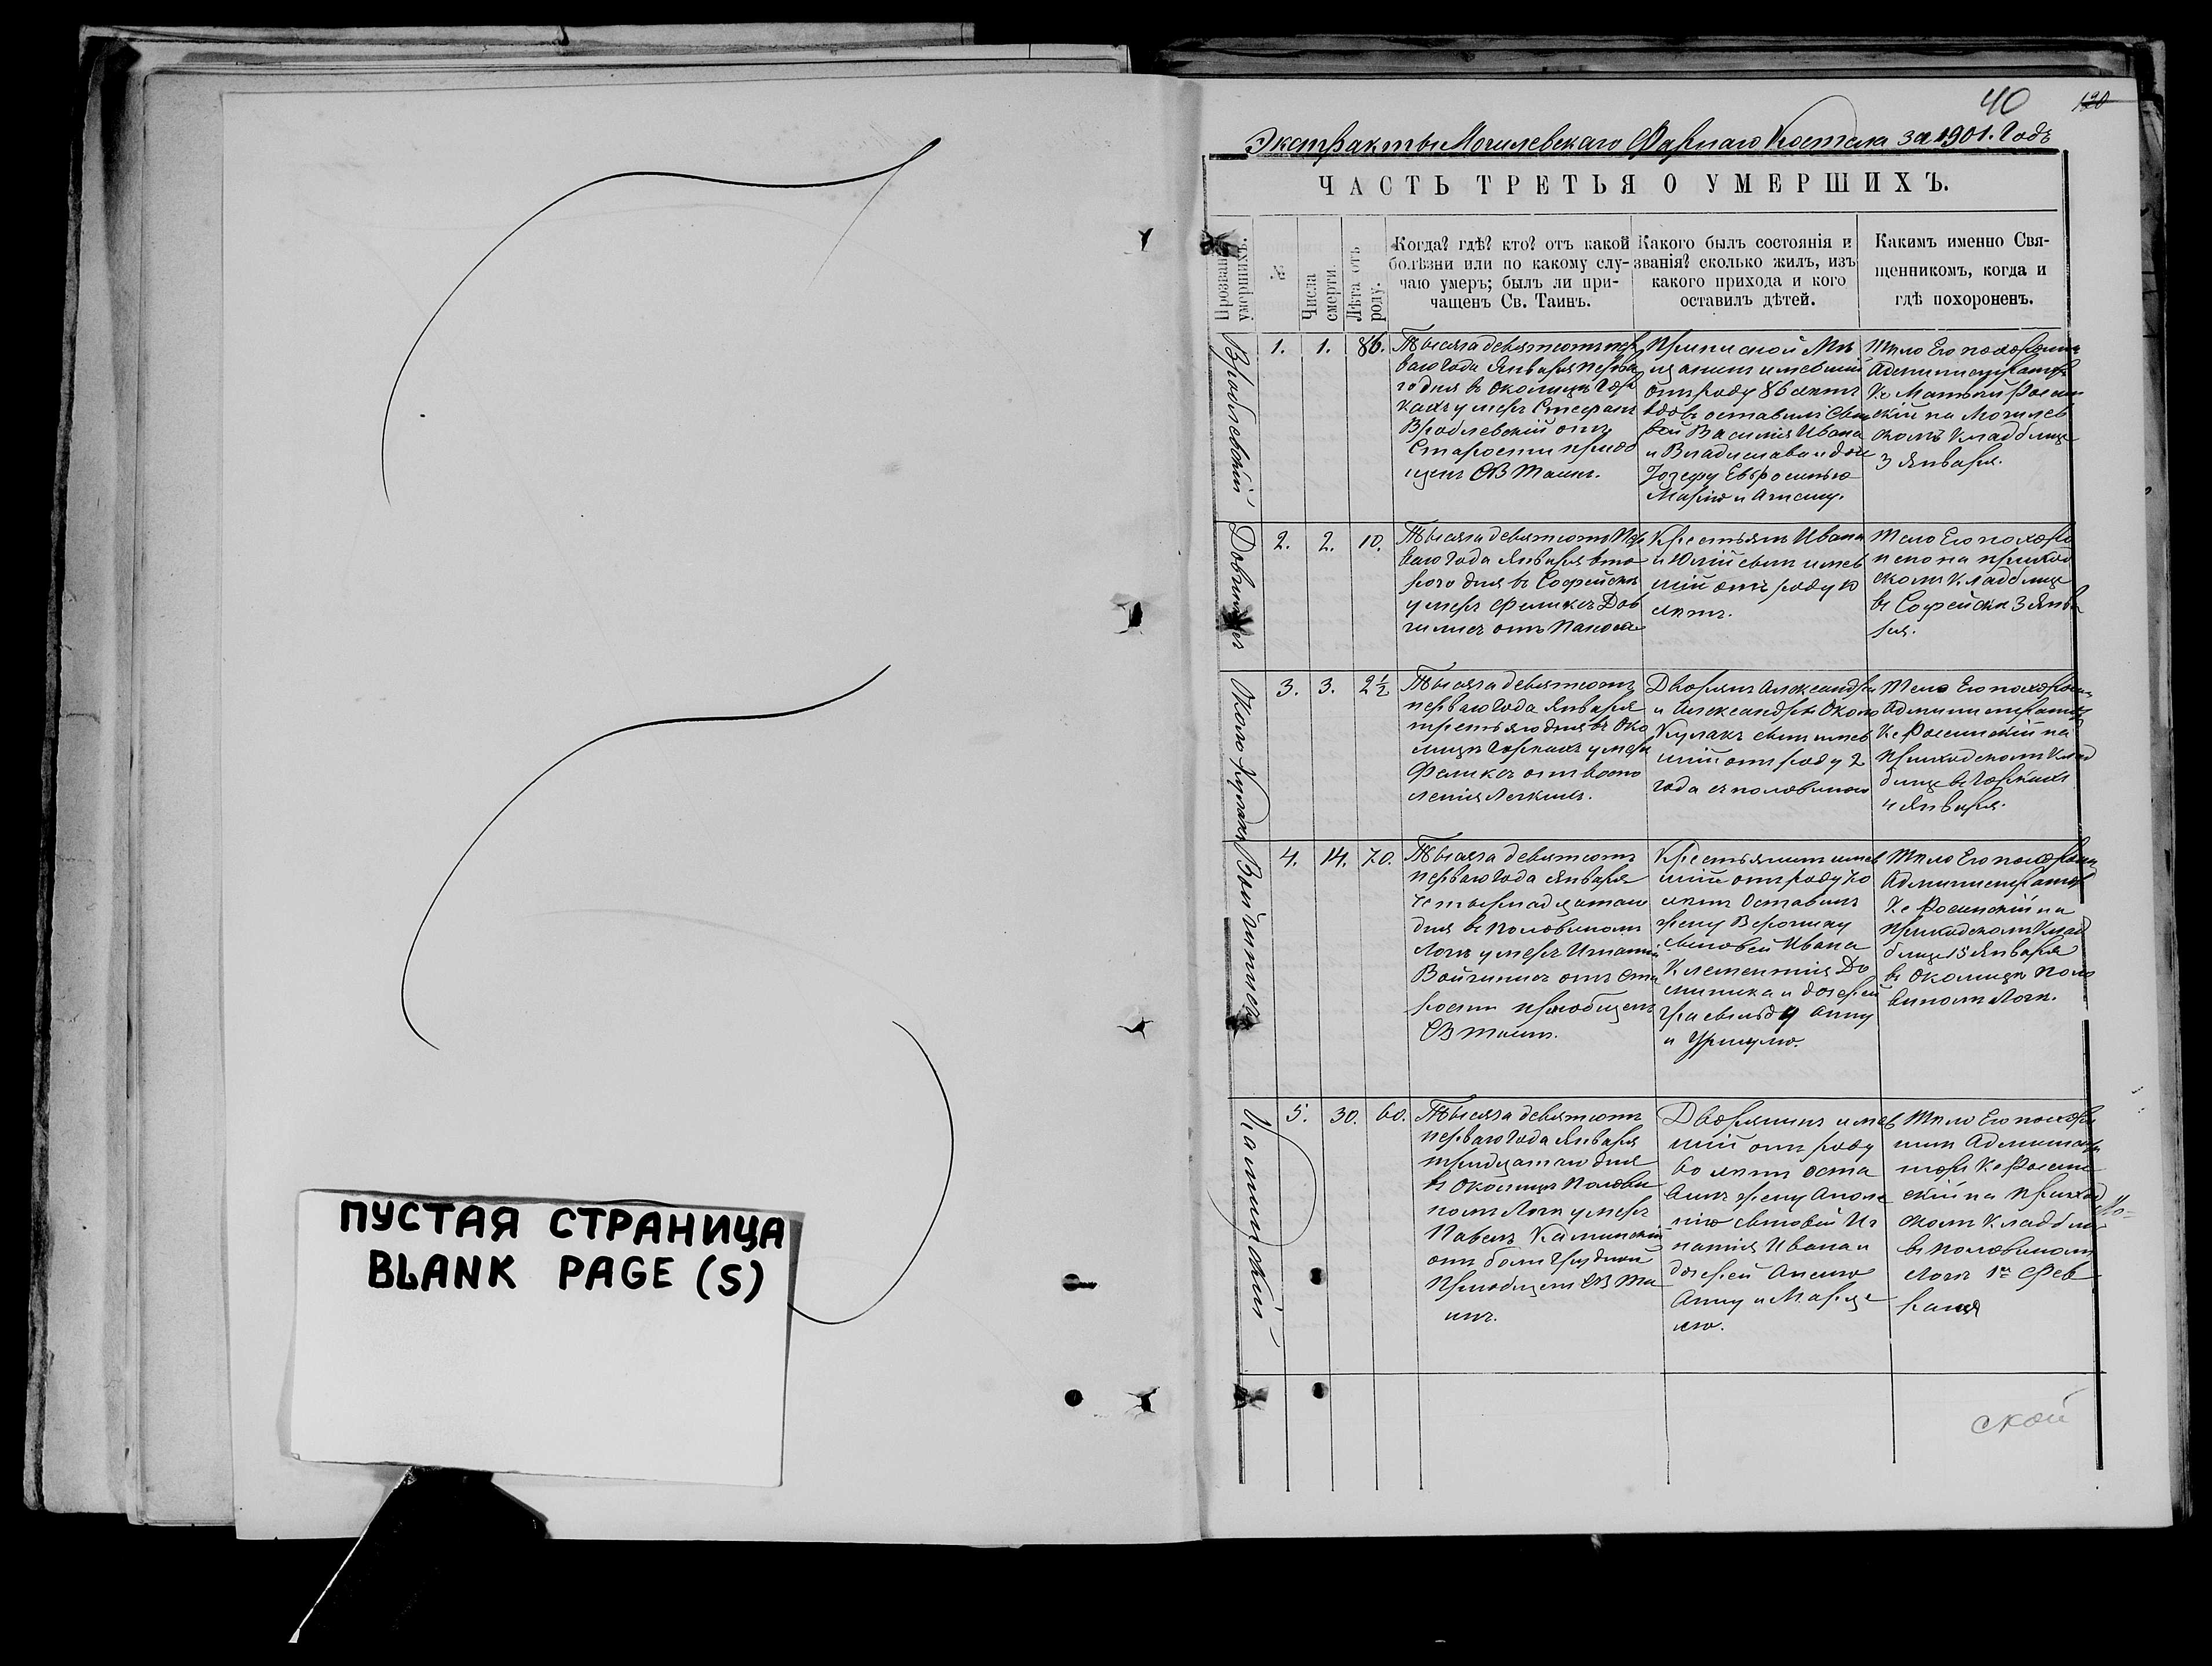 ПУСТАЯ СТРАНИЦА
BLANK PAGE (S)
40 120
Экстракты Могилевскаго Фарнаго Костела за 1901. Годъ
ЧАСТЬ ТРЕТЬЯ О УМЕРШИХЪ.
умершихъ.
№
Числа смерти.
Лѣта отъ роду.
Когда? гдѣ? кто? отъ какой
болѣзни или по какому слу-
чаю умеръ; былъ ли при-
чащенъ Св. Таинъ.
Какого былъ состоянія и
званія? сколько жилъ, изъ
какого прихода и кого
оставилъ дѣтей.
Какимъ именно Свя-
щенникомъ, когда и
гдѣ похороненъ.
Вроблевскій
1. 1. 86.
Тысяча девятьсотъ пер
ваго года Января перва
го дня въ околицѣ Гор
кахъ умеръ Стефанъ
Вроблевскій отъ
Старости
СВ Таинъ.
имевшій
отъ роду 86 летъ
вдовъ оставилъ сыно
вей Василія Ивана
и Владислава и доч
Іозефу Евфросинью
Марію и
Тѣло Его похоронилъ
Администраторъ
Кс
на Могилев
скомъ кладбище
3 Января.
2. 2. 10.
Тысяча девятьсотъ пер
ваго года Января вто
рого дня въ Софейскѣ
умеръ Феликсъ Дов
отъ
Крестьянъ Ивана
и Юліи сынъ имев
шій отъ роду 10
летъ.
Тело Его похоро
нено на приход
скомъ кладбище
въ Софейскѣ 3 Янва
ря.
Около Кулакъ
3. 3. 2½
Тысяча девятьсотъ
перваго года Января
третьяго дня въ Око
лицѣ Горкахъ умеръ
Феликсъ отъ воспо
ленія легкихъ.
Дворянъ Александра
и Александры Около
Кулакъ сынъ имев
шій отъ роду 2
года съ половиною
Тело Его похоронилъ
Администраторъ
Кс Росинскій на
приходскомъ клад
бище въ Горкахъ
4 Января.
4. 14. 70.
Тысяча девятьсотъ
перваго года Января
четырнадцатаго
дня въ Половиномъ
Логѣ умеръ Игнатій
Войчинисъ отъ Ста
рости приобщенъ
СВ Таинъ.
Крестьянинъ имев
шій отъ роду 70
летъ оставилъ
жену Веронику
сыновей Ивана
Клементія До
миника и дочерей
Гризельду Анну
и Уршулю.
Тѣло Его похоронилъ
Администраторъ
Кс Росинскій на
приходскомъ клад
бище 15 Января
въ околицѣ Поло
виномъ Логѣ.
Каминскій
5. 30. 60.
Тысяча девятьсотъ
перваго года Января
тридцатаго дня
въ Околицѣ Полови
номъ Логѣ умеръ
Павелъ Каминскій
отъ боли грудной
Приобщенъ СВ Та
инъ.
Дворянинъ имев
шій отъ роду
60 летъ оста
вилъ жену Аполо
нію сыновей Иг
натія Ивана и
дочерей
Анну и Марце
лю.
Тѣло Его похоро
нилъ Админист
торъ Кс Росин
скій на приход
скомъ кладбище
въ Половиномъ
Логѣ 1го Фев
раля
ской